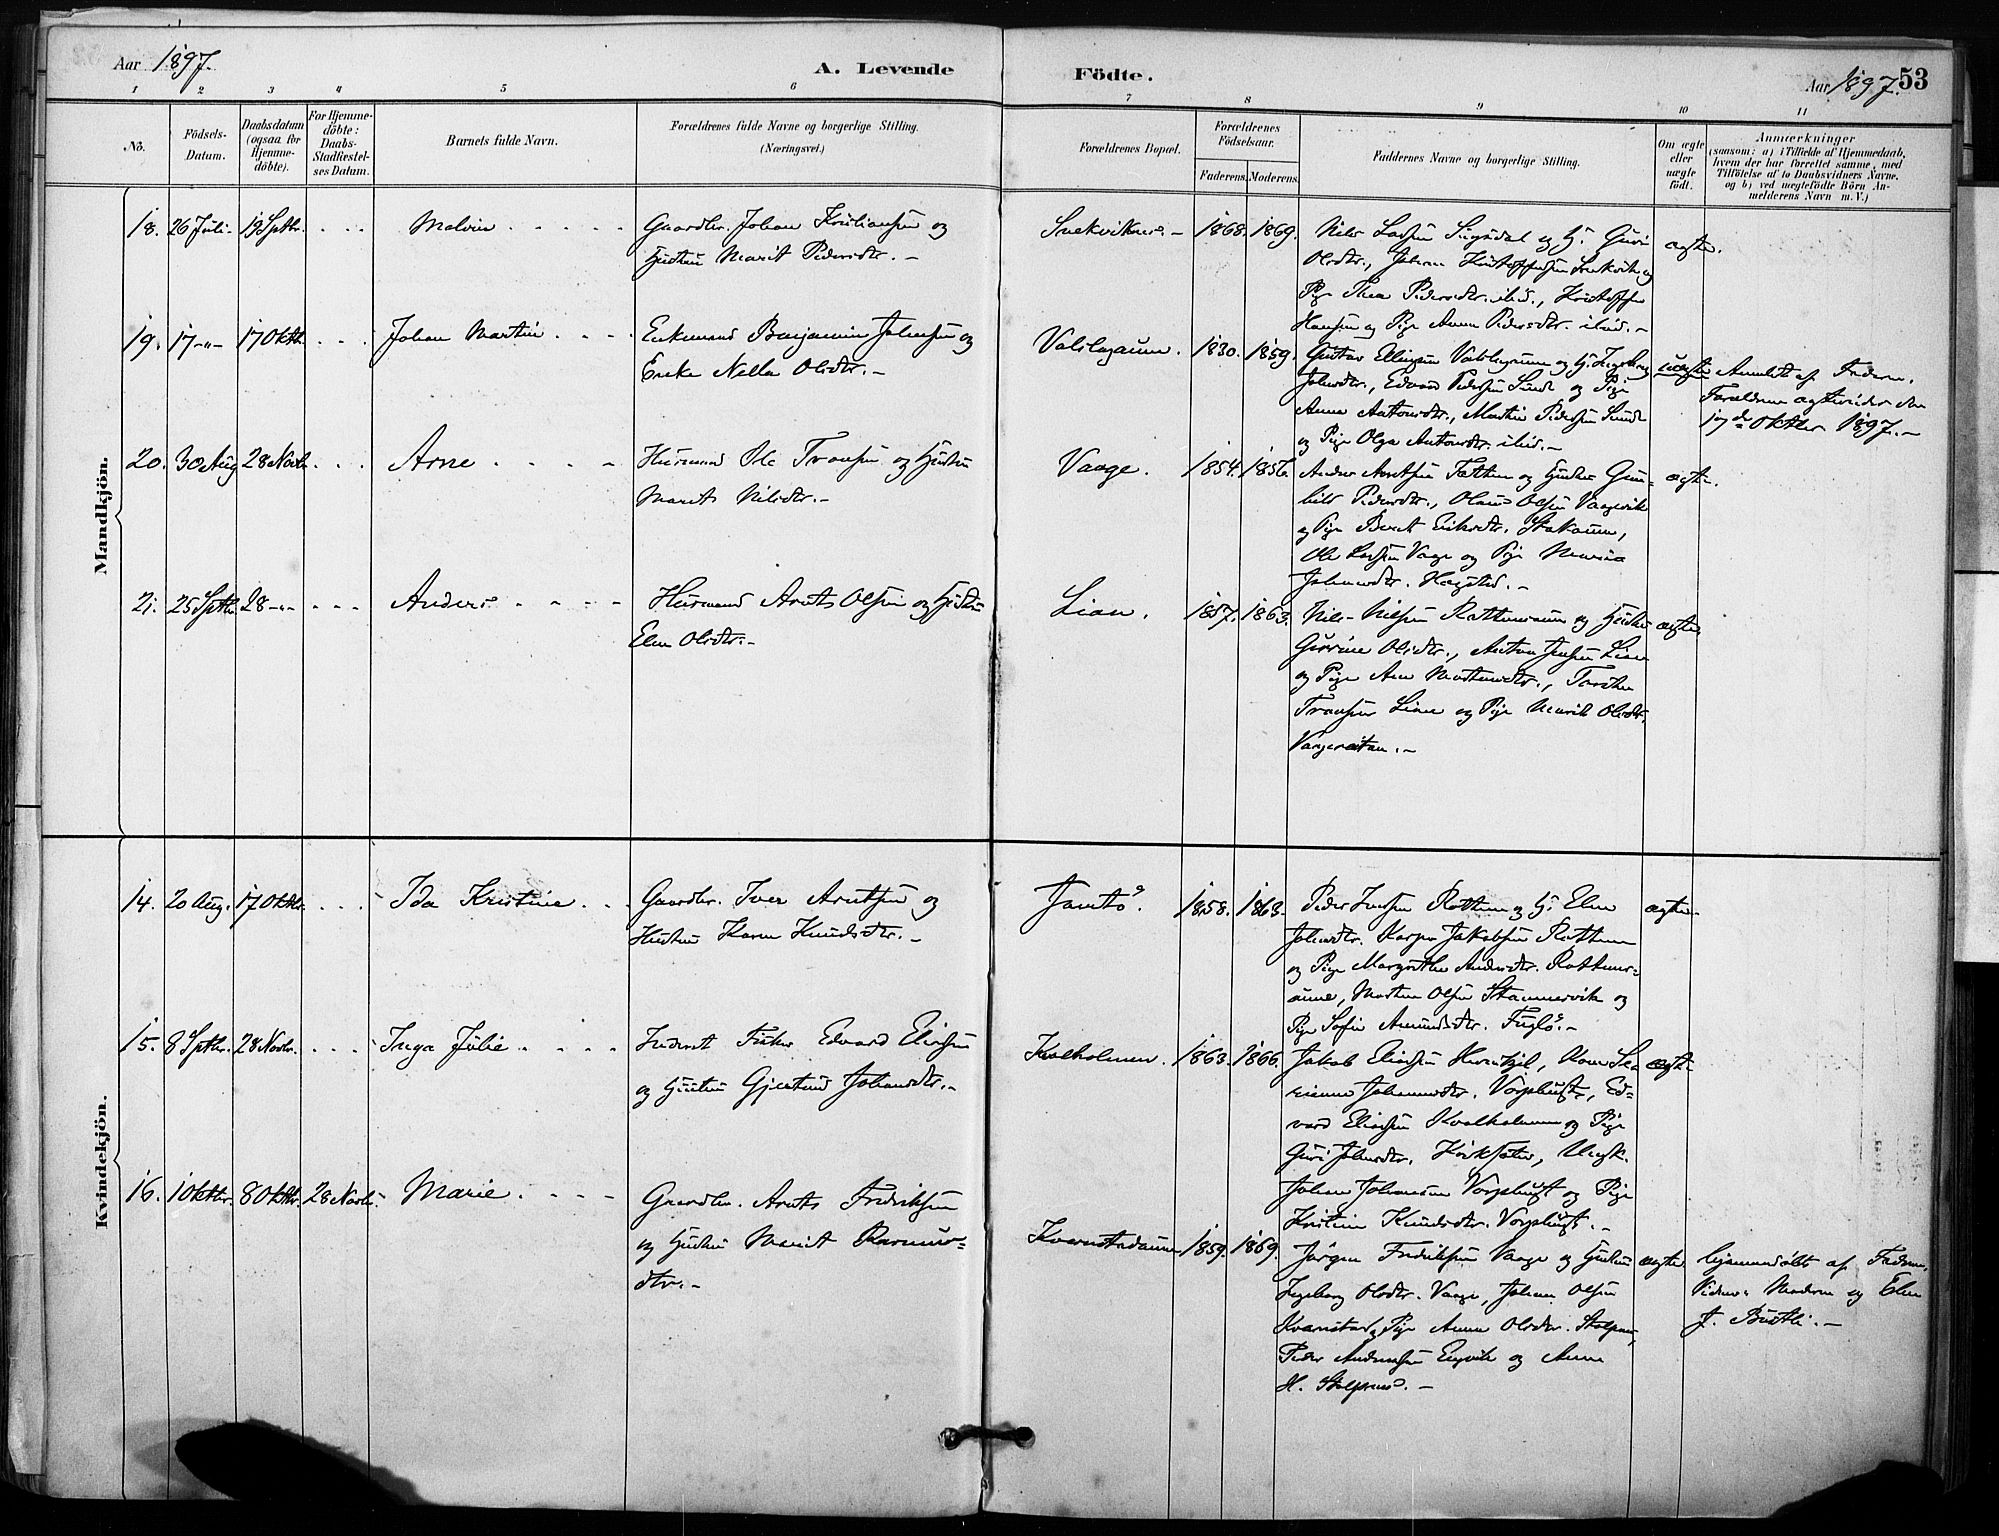 Aar 1897.
A. Levende
Födte.
Aar 1897. 53
1 2 3 4 5 6 7 8 9 10 11
No.
Födsels-
Datum.
Daabsdatum
(ogsaa for
Hjemme-
döbte).
For Hjemme-
döbte:
Daabs-
Stadfæstel-
ses Datum.
Barnets fulde Navn.
Forældrenes fulde Navne og borgerlige Stilling.
(Næringsvei.)
Forældrenes Bopæl.
Forældrenes
Födselsaar.
Faderens. Moderens.
Faddernes Navne og borgerlige Stilling.
Om ægte
eller
uægte
födt.
Anmærkninger
(saasom: a) i Tilfælde af Hjemmedaab,
hvem der har forrettet samme, med
Tilföielse af to Daabsvidners Navne,
og b) ved uægtefödte Börn An-
melderens Navn m. V.)
Mandkjön.
18. 26 Juli 19 Septbr. Melvin
Gaardbr. Johan Kristiansen og
Hustru Marit Pedersdtr.
1868. 1869.
Nils Larsen og H. Guri
Olsdtr., Johan Kristoffersen Snekvik og
Pige Thea Pedersdtr. ibid., Kristoffer
Hansen og Pige Anna Pedersdtr. ibid.
ægte.
19. 17 -"- 17 Oktbr. Johan Martin
Enkemand Benjamin Johnsen og
Enke Nella Olsdtr.
Valslagaunn. 1830. 1859.
Gustav Ellingsen Valslagaunn og H. Ingeborg
Johnsdtr., Edvard Pedersen Sunde og Pige
Anna Antonsdtr., Martin Pedersen Sunde
og Pige Olga Antonsdtr. ibid.
uægte
Anmeldt af Faderen.
Forældrene ægteviedes den
17de Oktbr 1897.
20. 30 Aug 28 Novbr. Arne
Husmand Ole Tronsen og Hustru
Marit Nilsdtr.
Vaage. 1854. 1856.
Anders Arntsen og Hustru Gun-
hild Pedersdtr., Olaus Olsen Vaagevik
og Pige Beret Eriksdtr.
Ole Larsen Vaage og Pige Maria
Johansdtr. Hagstad.
ægte.
21. 25 Septbr. 28 -"- Anders
Husmand Arnt Olsen og Hustru
Elen Olsdtr.
Lian. 1857. 1863.
Nils Nilsen Rottemsaunn og Hustru
Gurine Olsdtr., Anton Jensen Lian
og Pige Ane Mortensdtr., Torsten
Tronsen Lian og Pige Marit Olsdtr.
ægte.
Kvindekjön.
14. 20 Aug. 17 Oktbr. Ida Kristine
Gaardbr. Iver Arntsen og
Hustru Karen Knudsdtr.
Jamtö. 1858. 1863.
Peder Rottem og H. Elen
Johnsdtr. Kasper Jakobsen Rottem
og Pige Margrethe Andersdtr. Rottems-
aune, Morten Olsen Stamnesvik og
Pige Sofie Amundsdtr. Fuglö.
ægte.
15. 8 Septbr. 28 Novbr. Inga Julie
Inderst Fisker Edvard Eliasen
og Hustru Gjertrud Johansdtr.
Kvalholmen. 1863. 1866.
Jakob Eliasen
Johannesdtr. Vorphust, Ed-
vard Eliasen Kvalholmen og Pige
Guri Johnsdtr. Kirksæter, Ungk.
Johan Johansen Vorphust og Pige
Kristine Knudsdtr. Vorphust.
ægte.
16. 1 Oktbr. 8 Oktbr. 28 Novbr. Marie
Gaardbr. Arnt Fredriksen
og Hustru Marit Rasmus-
dtr.
Kvernstadaunn 1859. 1869.
Jörgen Fredriksen Vaage og Hustru
Ingeborg Olsdtr. Vaage, Johan Olsen
Kvernstad, Pige Anna Olsdtr. Stolpnes,
Peder Andersen Engvik og Anna
H. Stolpnes.
ægte
hjemmedöbt af Faderen,
Vidner: Moderen og Elen
J. Bustli.